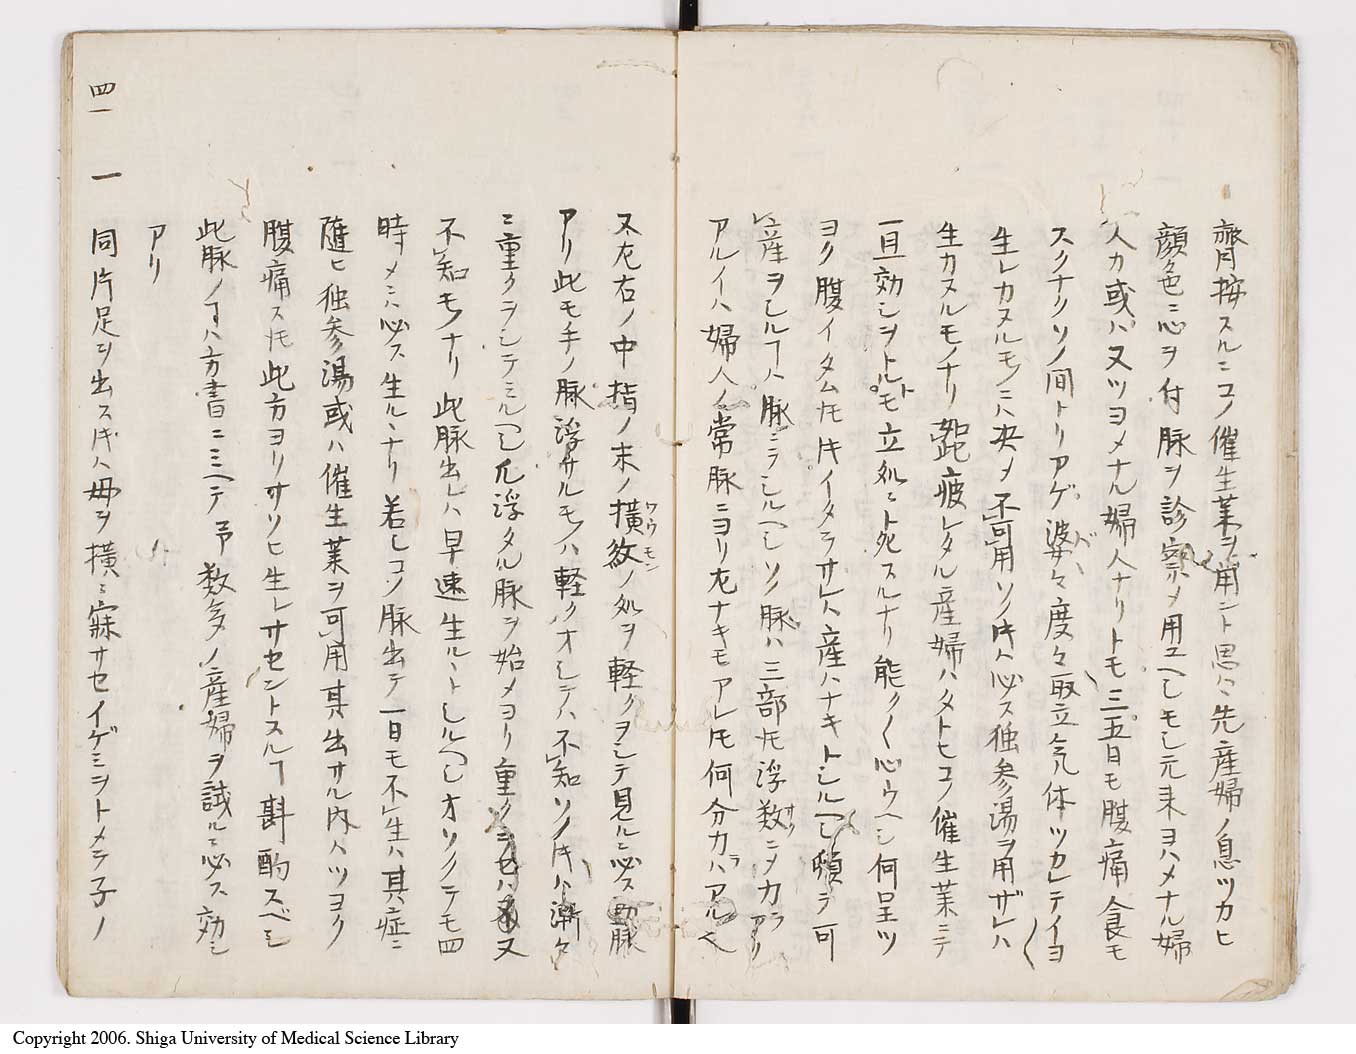 臍按スルニコノ催生薬ヲ用ント思ハヽ先産婦ノ息ツカヒ
顔色ニ心ヲ付脉ヲ診察〆用ユヘシモシ元来ヨハメナル婦
人カ或ハ又ツヨメナル婦人ナリトモ三五日モ腹痛食モ
スクナクソノ間トリアゲ婆々度々取立気体ツカレテイヨ〱
生レカヌルモノニハ决〆不可用ソノ時ハ必ス独参湯ヲ用ザレハ
生カヌルモノナリ如此疲レタル産婦ハタトヒコノ催生薬ニテ
一旦効シヲトルトモ立処ニ死スルナリ能〱心ウヘシ何呈ツ
ヨク腹イタムトモ時イタラザレハ産ハナキトシルヘシ頓テ可
産ヲシルコトハ脉ニテシルヘシソノ脉ハ三部トモ浮数ニ〆力ラアリ
アルイハ婦人ノ常脉ニヨリ左ナキモアレトモ何分力ラハアルヘシ
又左右ノ中指ノ末ノ横紋ノ処ヲ軽クヲシテ見ルニ必ス脉
ワウモン
アリ此モ手ノ脉浮ザルモノハ軽クオシテハ不知ソノ時ハ漸々
ニ重クヲシテミルヘシ凡浮タル脉ヲ始メヨリ重クヲセハ又
不知モノナリ此脉出レハ早速生ルヽトシルヘシオソクテモ四
時メニハ必ス生ルヽナリ若シコノ脉出テ一日モ不生ハ其症ニ
隨ヒ独参湯或ハ催生薬ヲ可用其出サル内ハツヨク
腹痛ストモ此方ヨリサソヒ生レサセントスルコト斟酌スベシ
此脉ノコトハ方書ニミヘテ予数多ノ産婦ヲ試ルニ必ス効シ
アリ
四一 一 同片足ヲ出ス時ハ母ヲ横ニ寐サセイゲミヲトメテ子ノ
Copyright 2006. Shiga University of Medical Science Library